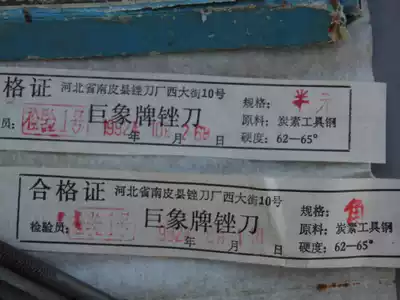 格证 河北省南皮县锉刀厂西大街10号
规格: 半元
员: 检验1号 巨象牌锉刀 原料: 炭素工具钢
年 月 日 硬度: 62—65°
合格证 河北省南皮县锉刀厂西大街10号
规格: 角
检验员: 巨象牌锉刀 原料: 炭素工具钢
年 月 日 硬度: 62—65°